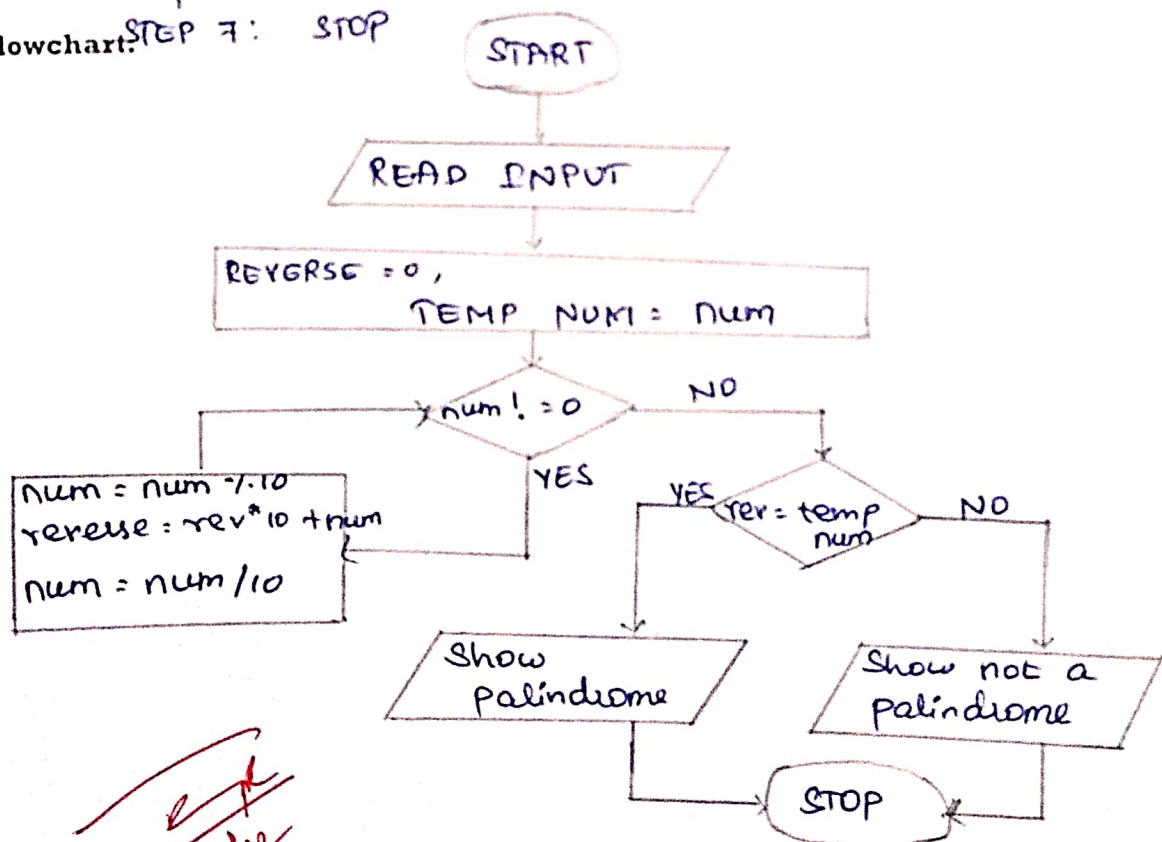 STEP 7: STOP
lowchart:
START
READ INPUT
REVERSE = 0,
TEMP NUM = num
num != 0
NO
YES
num = num % 10
reverse = rev* 10 + num
num = num / 10
YES
rev = temp
num
NO
Show
palindrome
Show not a
palindrome
STOP